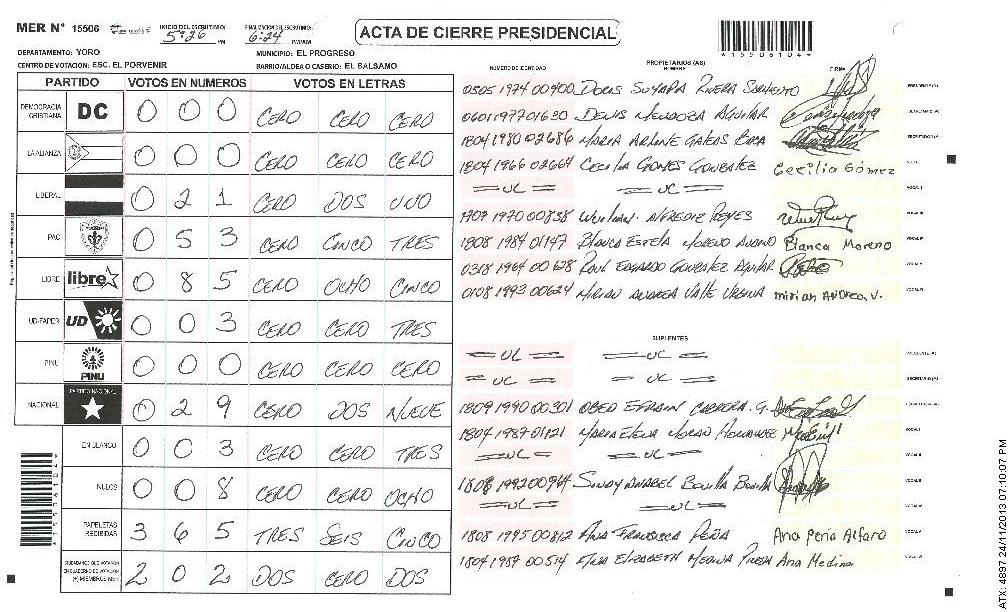 MER N° 15506
INICIO DEL ESCRUTINIO: 5:26 PM
FINALIZACION DEL ESCRUTINIO: 6:24 PM/AM
ACTA DE CIERRE PRESIDENCIAL
4155061044
DEPARTAMENTO: YORO
MUNICIPIO: EL PROGRESO
CENTRO DE VOTACION: ESC. EL PORVENIR
BARRIO/ALDEA O CASERIO: EL BALSAMO
PARTIDO VOTOS EN NUMEROS VOTOS EN LETRAS
DEMOCRACIA CRISTIANA DC 0 0 0 CERO CERO CERO
LA ALIANZA 0 0 0 CERO CERO CERO
LIBERAL 0 2 1 CERO DOS UNO
PAC 0 5 3 CERO CINCO TRES
LIBRE libre 0 8 5 CERO OCHO CINCO
UD-FAPER UD 0 0 3 CERO CERO TRES
PINU PINU 0 0 0 CERO CERO CERO
NACIONAL PARTIDO NACIONAL 0 2 9 CERO DOS NUEVE
EN BLANCO 0 0 3 CERO CERO TRES
NULOS 0 0 8 CERO CERO OCHO
PAPELETAS RECIBIDAS 3 6 5 TRES SEIS CINCO
CIUDADANOS QUE VOTARON EN CUADERNO DE VOTACION (+) MIEMBROS MER 2 0 2 DOS CERO DOS
PROPIETARIOS (AS)
NUMERO DE IDENTIDAD NOMBRE FIRMA
0505 1974 00400 DORIS SUYAPA RIVERA SARMIENTO PRESIDENTE (A)
0601 1977 01630 DENIS MENDOZA AGUILAR SECRETARIO (A)
1804 1980 02686 MARIA ARLENE GALEAS
1804 1966 02664 CECILIA GOMES GONZALEZ Cecilia Gómez
UL UL
1707 1970 00838 REYES
1808 1984 01147 BLANCA ESTELA MORENO Blanca Moreno
0318 1964 00628 RAUL EDGARDO GONZALEZ AGUILAR
0108 1993 00624 MIRIAN ANDREA VALLE mirian Andrea V.
SUPLENTES
UL UL PRESIDENTE (A)
UL UL SECRETARIO (A)
1809 1990 00301 OBED EFRAIN CABRERA G.
1804 1987 01121 MARIA ELENA MORAN HERNANDEZ
UL UL
1808 1992 00964 SINDY ANABEL BONILLA BONILLA
UL UL
1808 1995 00812 ANA FRANCISCA PEÑA Ana Peña Alfaro
1804 1987 00514 ANA ELIZABETH MEDINA PINEDA Ana Medina
ATX: 4897 24/11/2013 07:10:07 PM